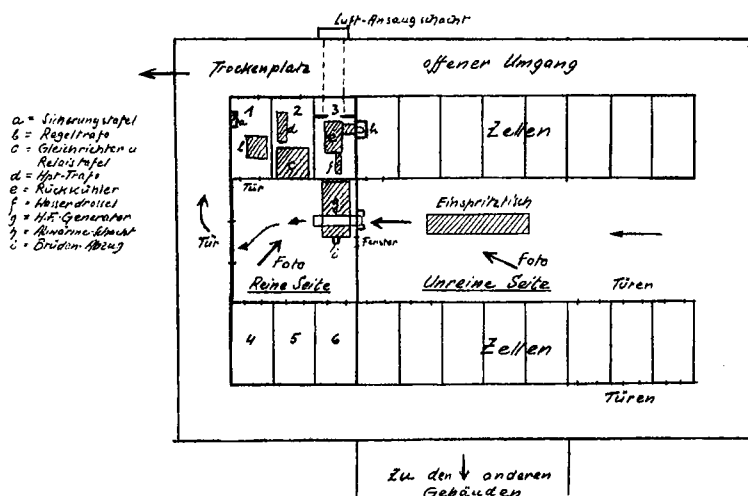 Luft-Ansaugschacht
Trockenplatz
offener Umgang
a = Sicherungstafel
b = Regeltrafo
c = Gleichrichter u
Relaistafel
d = Hpt-Trafo
e = Rückkühler
f = Wasserdrossel
g = H.F.-Generator
h = Abwärme-Schacht
i = Brüden-Abzug
1 2 3
a b c d e f h
Zellen
Tür
g
i
Einspritztisch
Tür
Fenster
Foto
Foto
Reine Seite
Unreine Seite
Türen
4 5 6
Zellen
Türen
Zu den anderen
Gebäuden